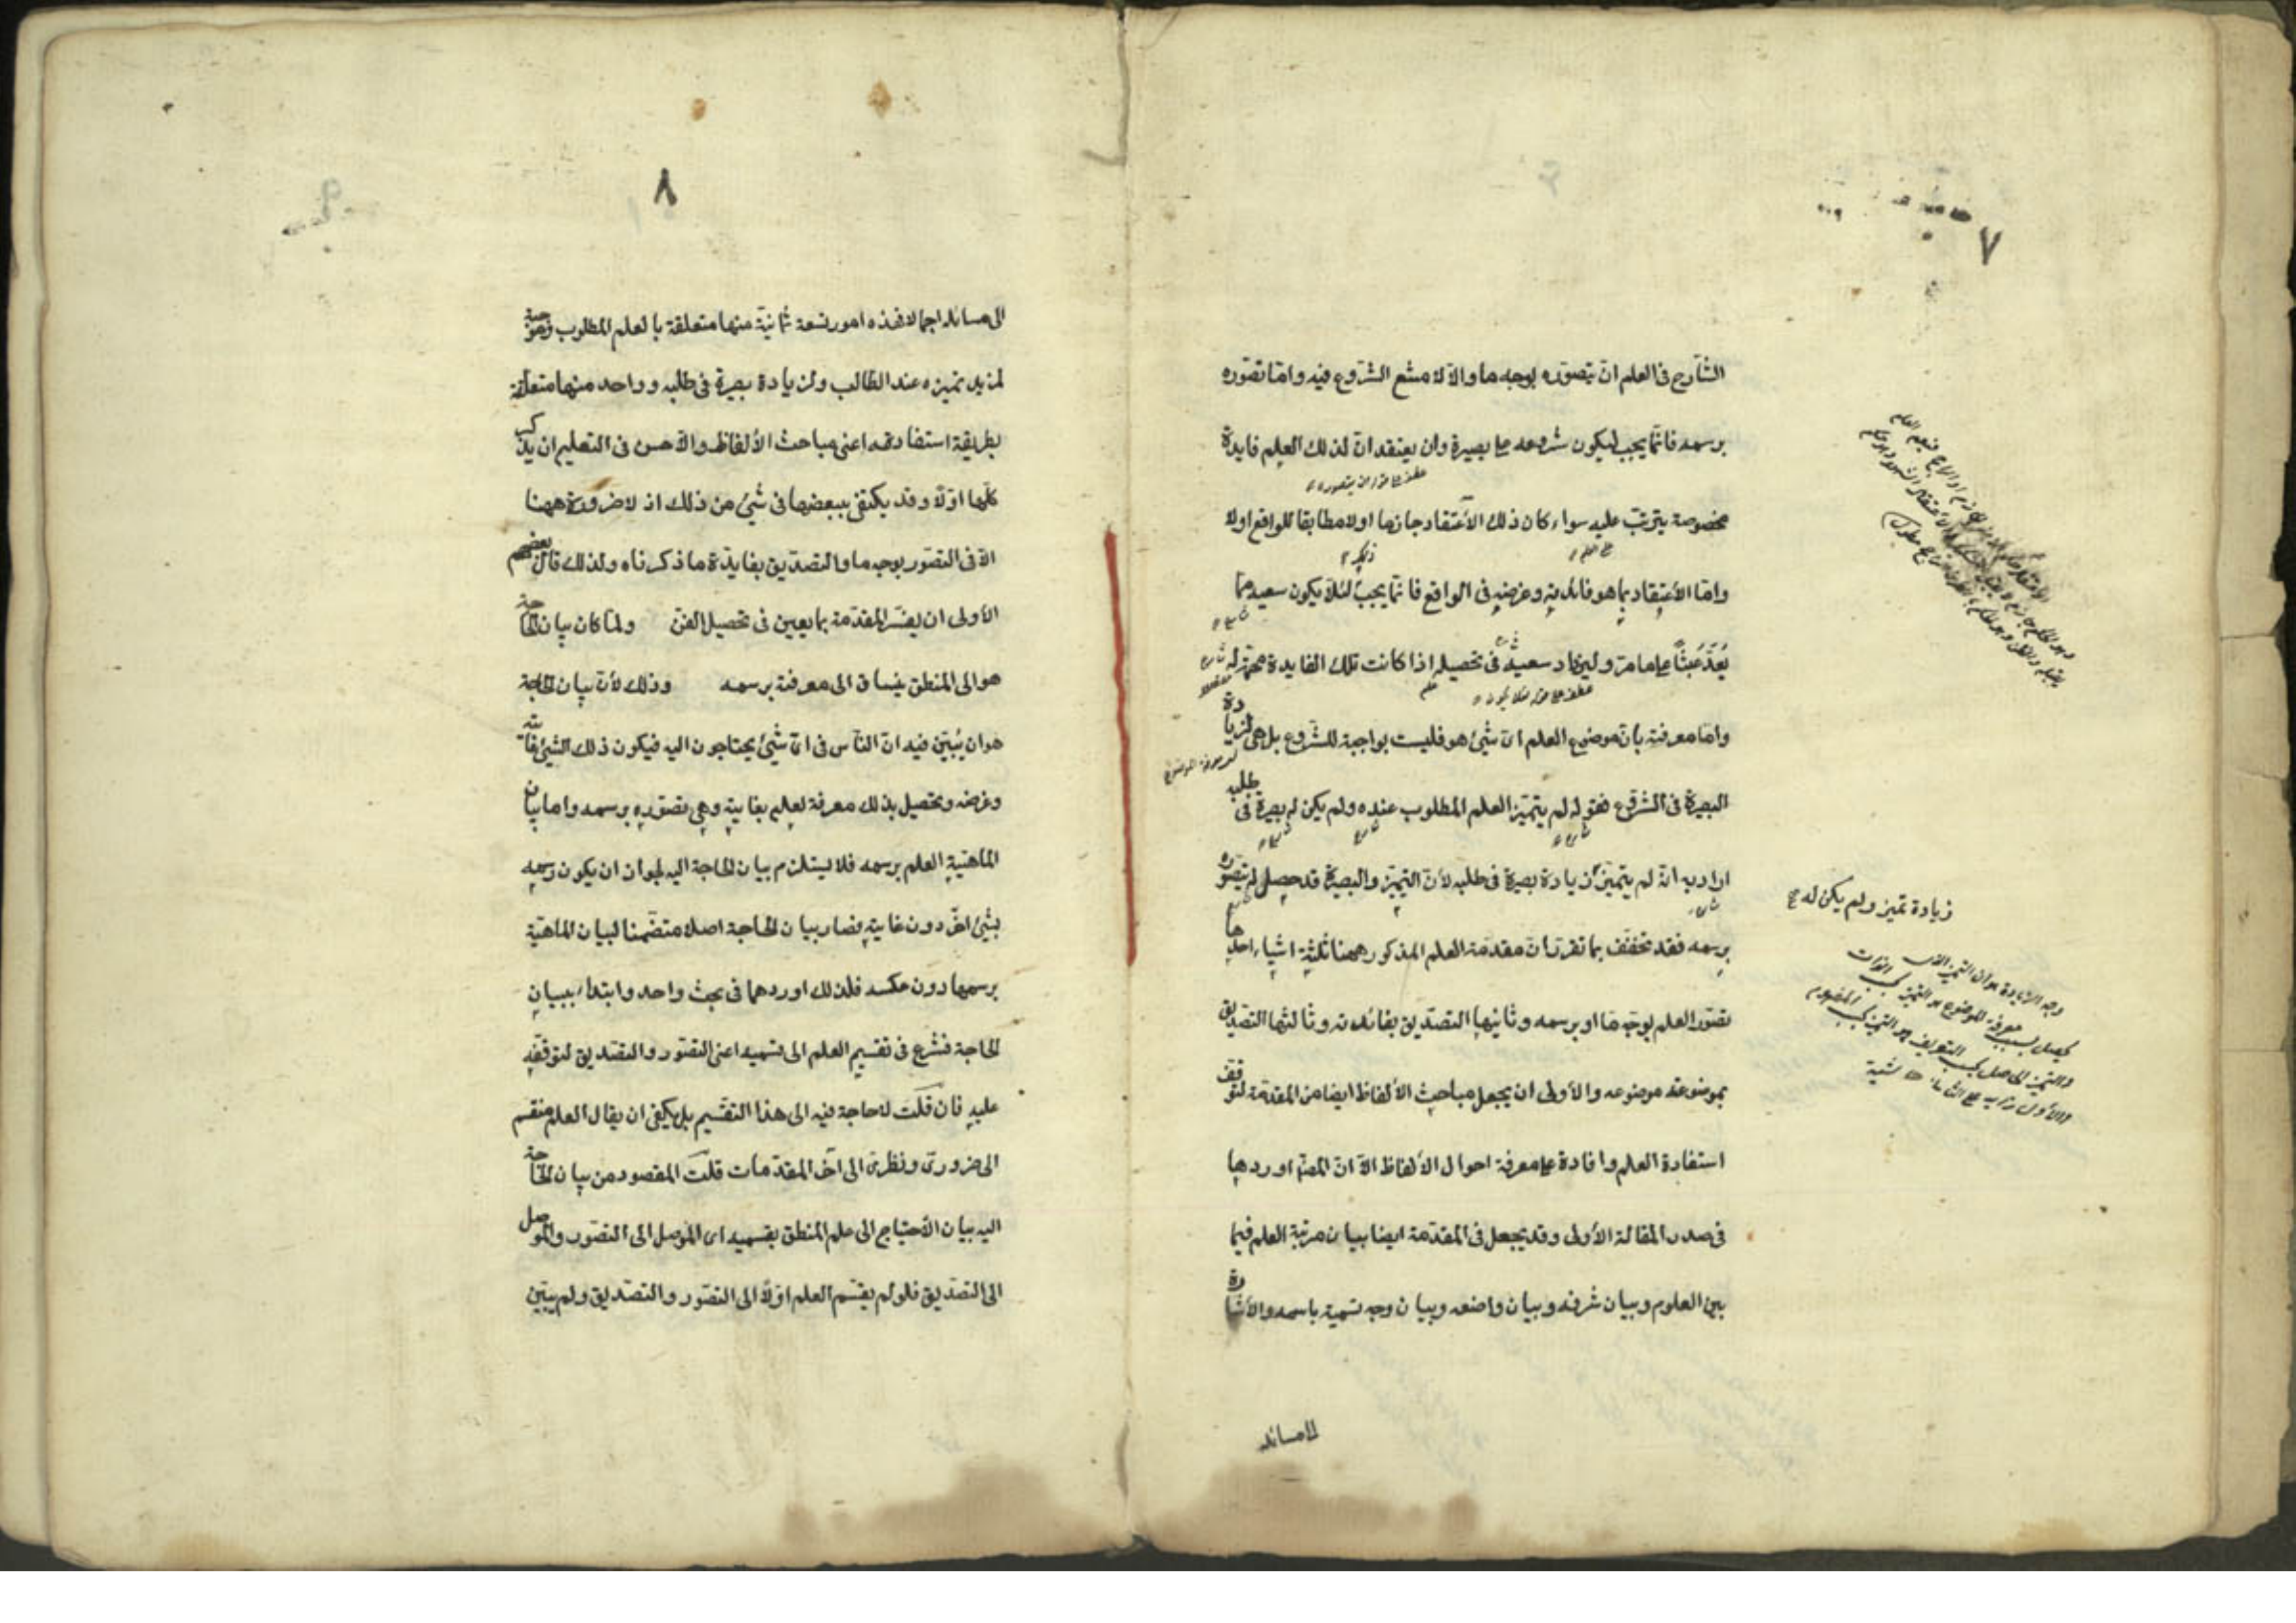 ٧
الشارع فى العلم ان يتصوره بوجه ما والا لامتنع الشروع فيه واما تصوره
برسمه فانما يجب ليكون شروعه على بصيرة وان يعتقد ان لذلك العلم فايدة
مخصوصة يترتب عليه سواء كان ذلك الاعتقاد جازما اولا مطابقا للواقع اولا
واما الاعتقاد بما هو فائدته وغرضه فى الواقع فانما يجب لئلا يكون سعيه مما
يُعَدّ عَبَثًا على ما مر وليزداد سعيه فى تحصيله اذا كانت تلك الفايدة مهمة له
واما معرفته بان موضوع العلم اى شئ هو فليست بواجبة للشروع بل هى لزيادة
البصيرة فى الشروع فقوله لم يتميز العلم المطلوب عنده ولم يكن له بصيرة فى طلبه
اراد به انه لم يتميز زيادة بصيرة فى طلبه لان التميز والبصيرة قد حصل له بتصوره
برسمه فقد تحقق بما تقرر ان مقدمة العلم المذكور ههنا ثلثة اشياء احدها
تصور العلم بوجه ما او برسمه وثانيها التصديق بفائدته وثالثها التصديق
بموضوعية موضوعه والأولى ان يجعل مباحث الألفاظ ايضا من المقدمة لتوقف
استفادة العلم وافادة على معرفة احوال الالفاظ الا ان المصنف اوردها
فى صدر المقالة الأولى وقد يجعل فى المقدمة ايضا بيان مرتبة العلم فيما
بين العلوم وبيان شرفه وبيان واضعه وبيان وجه تسمية باسمه والأشارة
الى مسائله
زيادة تميز ولم يكن له صح
وجه الزيادة هو ان التميز الذى
يحصل بسبب معرفة الموضوع هو التميز بحسب الذات
والتميز الحاصل بحسب التعريف هو التميز بحسب المفهوم
٨
الى مسائله اجمالا فهذه امور تسعة ثمانية منها متعلقة بالعلم المطلوب وموجبة
لمزيد تميزه عند الطالب ولزيادة بصيرة فى طلبه وواحد منها متعلقة
بطريقة استفادته اعنى مباحث الألفاظ والأحسن فى التعليم ان يذكر
كلها اولا وقد يكتفى ببعضها فى شئ من ذلك اذ لا ضرورة ههنا
الا فى التصور بوجه ما والتصديق بفايدة ما ذكرناه ولذلك قال بعضهم
الأولى ان يفسر المقدمة بما يعين فى تحصيل الفن ولما كان بيان الحاجة
هو الى المنطق ينساق الى معرفته برسمه وذلك لأن بيان الحاجة
هو ان يُبَيّن فيه ان الناس فى اى شئ يحتاجون اليه فيكون ذلك الشئ غايته
وغرضه وتحصيل بذلك معرفة لعلم بغايته وهى تصوره برسمه واما بيان
الماهية العلم برسمه فلا يستلزم بيان الحاجة اليه لجواز ان يكون رسمه
بشئ اخر دون غايته فصار بيان الحاجة اصلا متضمنا لبيان الماهية
برسمها دون عكسه فلذلك اوردهما فى بحث واحد وابتداء ببيان
الحاجة فشرع فى تقسيم العلم الى قسميه اعنى التصور والتصديق لتوقفه
عليه فان قلت لا حاجة فيه الى هذا التقسيم بل يكفى ان يقال العلم منقسم
الى ضرورى ونظرى الى آخر المقدمات قلت المقصود من بيان الحاجة
اليه بيان الأحتياج الى علم المنطق بقسميه اى الموصل الى التصور والموصل
الى التصديق فلو لم يقسم العلم اولا الى التصور والتصديق ولم يبين